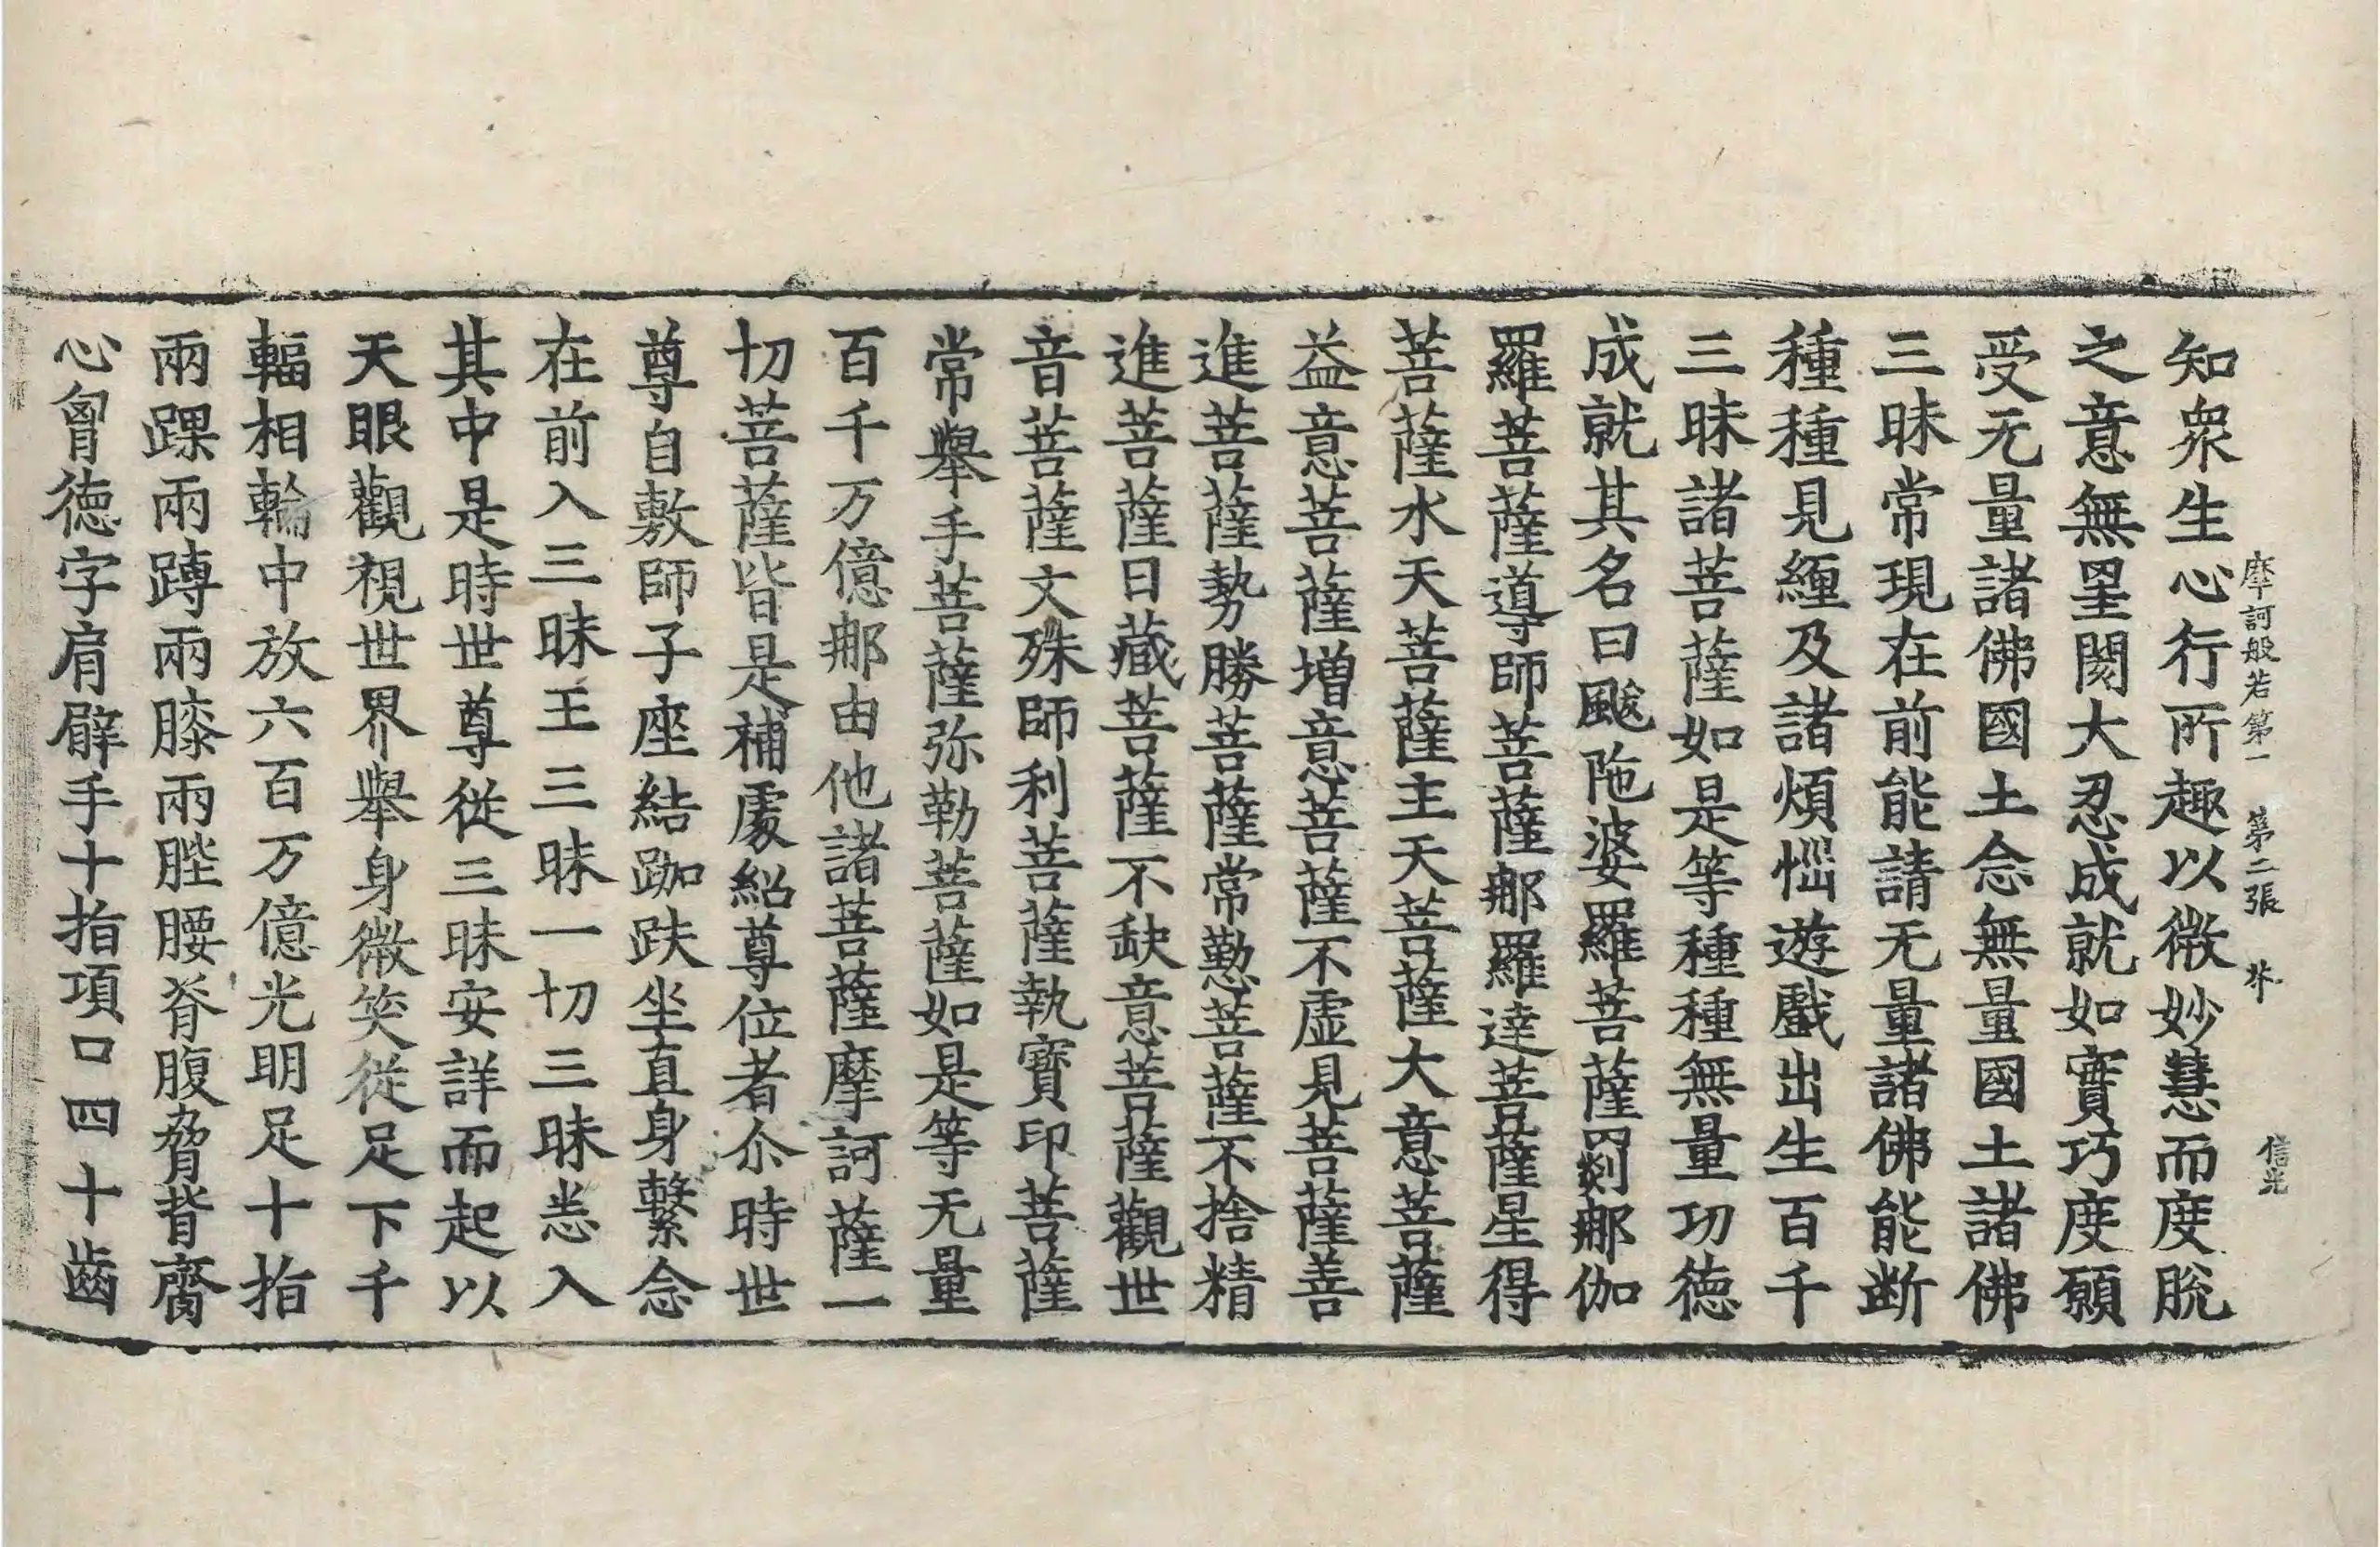 摩訶般若第一 第二張 芥 信光
知衆生心行所趣以微妙慧而度脫
之意無罣閡大忍成就如實巧度願
受无量諸佛國土念無量國土諸佛
三昧常現在前能請无量諸佛能断
種種見纏及諸煩惱遊戲出生百千
三昧諸菩薩如是等種種無量功德
成就其名曰颰陁婆羅菩薩罽那伽
羅菩薩導師菩薩那羅達菩薩星得
菩薩水天菩薩主天菩薩大意菩薩
益意菩薩增意菩薩不虛見菩薩善
進菩薩勢勝菩薩常懃菩薩不捨精
進菩薩日藏菩薩不缺意菩薩觀世
音菩薩文殊師利菩薩執寶印菩薩
常舉手菩薩弥勒菩薩如是等无量
百千万億那由他諸菩薩摩訶薩一
切菩薩皆是補處紹尊位者尒時世
尊自敷師子座結跏趺坐直身繫念
在前入三昧王三昧一切三昧悉入
其中是時世尊從三昧安詳而起以
天眼觀視世界舉身微笑從足下千
輻相輪中放六百万億光明足十指
兩踝兩蹲兩膝兩髀腰脊腹脅背齎
心胷德字肩臂手十指項口四十齒